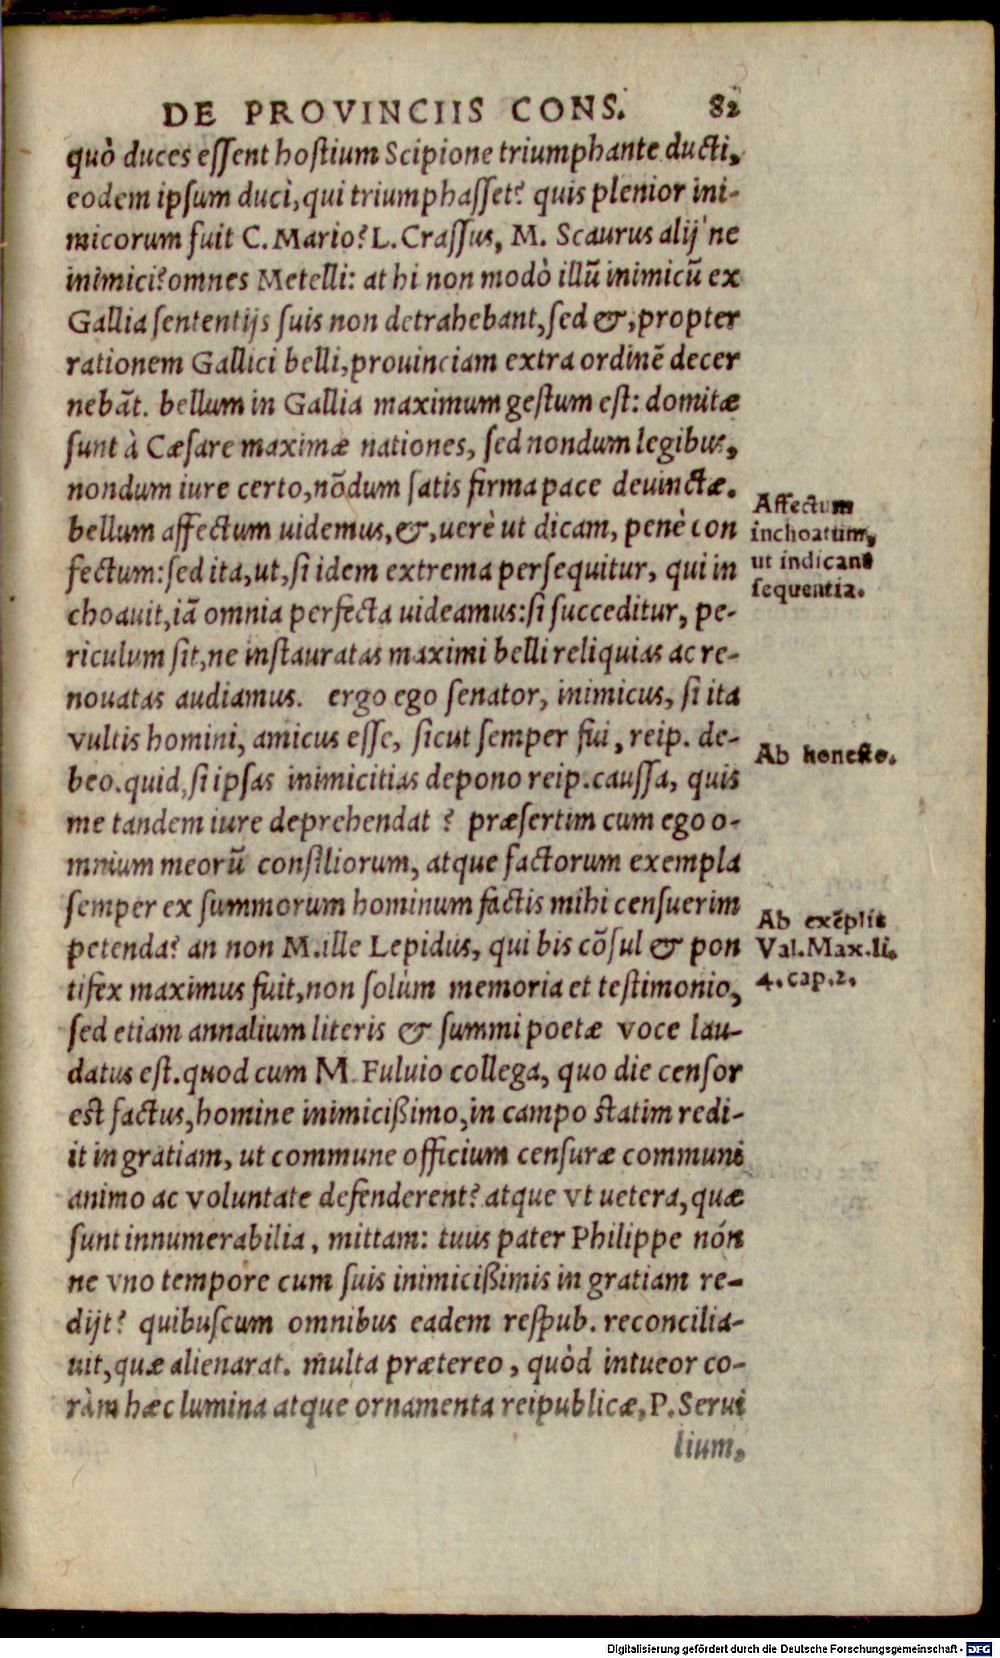 DE PROVINCIIS CONS. 82
quò duces essent hostium Scipione triumphante ducti,
eodem ipsum duci, qui triumphasset? quis plenior ini-
micorum fuit C. Mario? L. Crassus, M. Scaurus alij ne
inimici? omnes Metelli: at hi non modò illũ inimicũ ex
Gallia sententijs suis non detrahebant, sed &, propter
rationem Gallici belli, prouinciam extra ordinẽ decer
nebãt. bellum in Gallia maximum gestum est: domitæ
sunt à Cæsare maximæ nationes, sed nondum legibus,
nondum iure certo, nõdum satis firma pace deuinctæ.
bellum affectum uidemus, &, uerè ut dicam, penè con
fectum: sed ita, ut, si idem extrema persequitur, qui in
choauit, iã omnia perfecta uideamus: si succeditur, pe-
riculum sit, ne instauratas maximi belli reliquias ac re-
nouatas audiamus. ergo ego senator, inimicus, si ita
vultis homini, amicus esse, sicut semper fui, reip. de-
beo. quid, si ipsas inimicitias depono reip. caussa, quis
me tandem iure deprehendat? præsertim cum ego o-
mnium meorũ consiliorum, atque factorum exempla
semper ex summorum hominum factis mihi censuerim
petenda? an non M. ille Lepidus, qui bis cõsul & pon
tifex maximus fuit, non solùm memoria et testimonio,
sed etiam annalium literis & summi poetæ voce lau-
datus est. quod cum M. Fuluio collega, quo die censor
est factus, homine inimicißimo, in campo statim redi-
it in gratiam, ut commune officium censuræ communi
animo ac voluntate defenderent? atque vt uetera, quæ
sunt innumerabilia, mittam: tuus pater Philippe nón
ne vno tempore cum suis inimicißimis in gratiam re-
dijt? quibuscum omnibus eadem respub. reconcilia-
uit, quæ alienarat. multa prætereo, quòd intueor co-
ràm hæc lumina atque ornamenta reipublicæ, P. Serui
lium,
Affectum
inchoatum,
ut indicant
sequentia.
Ab honesto.
Ab exẽplis
Val. Max. li.
4. cap. 2.
Digitalisierung gefördert durch die Deutsche Forschungsgemeinschaft - DFG